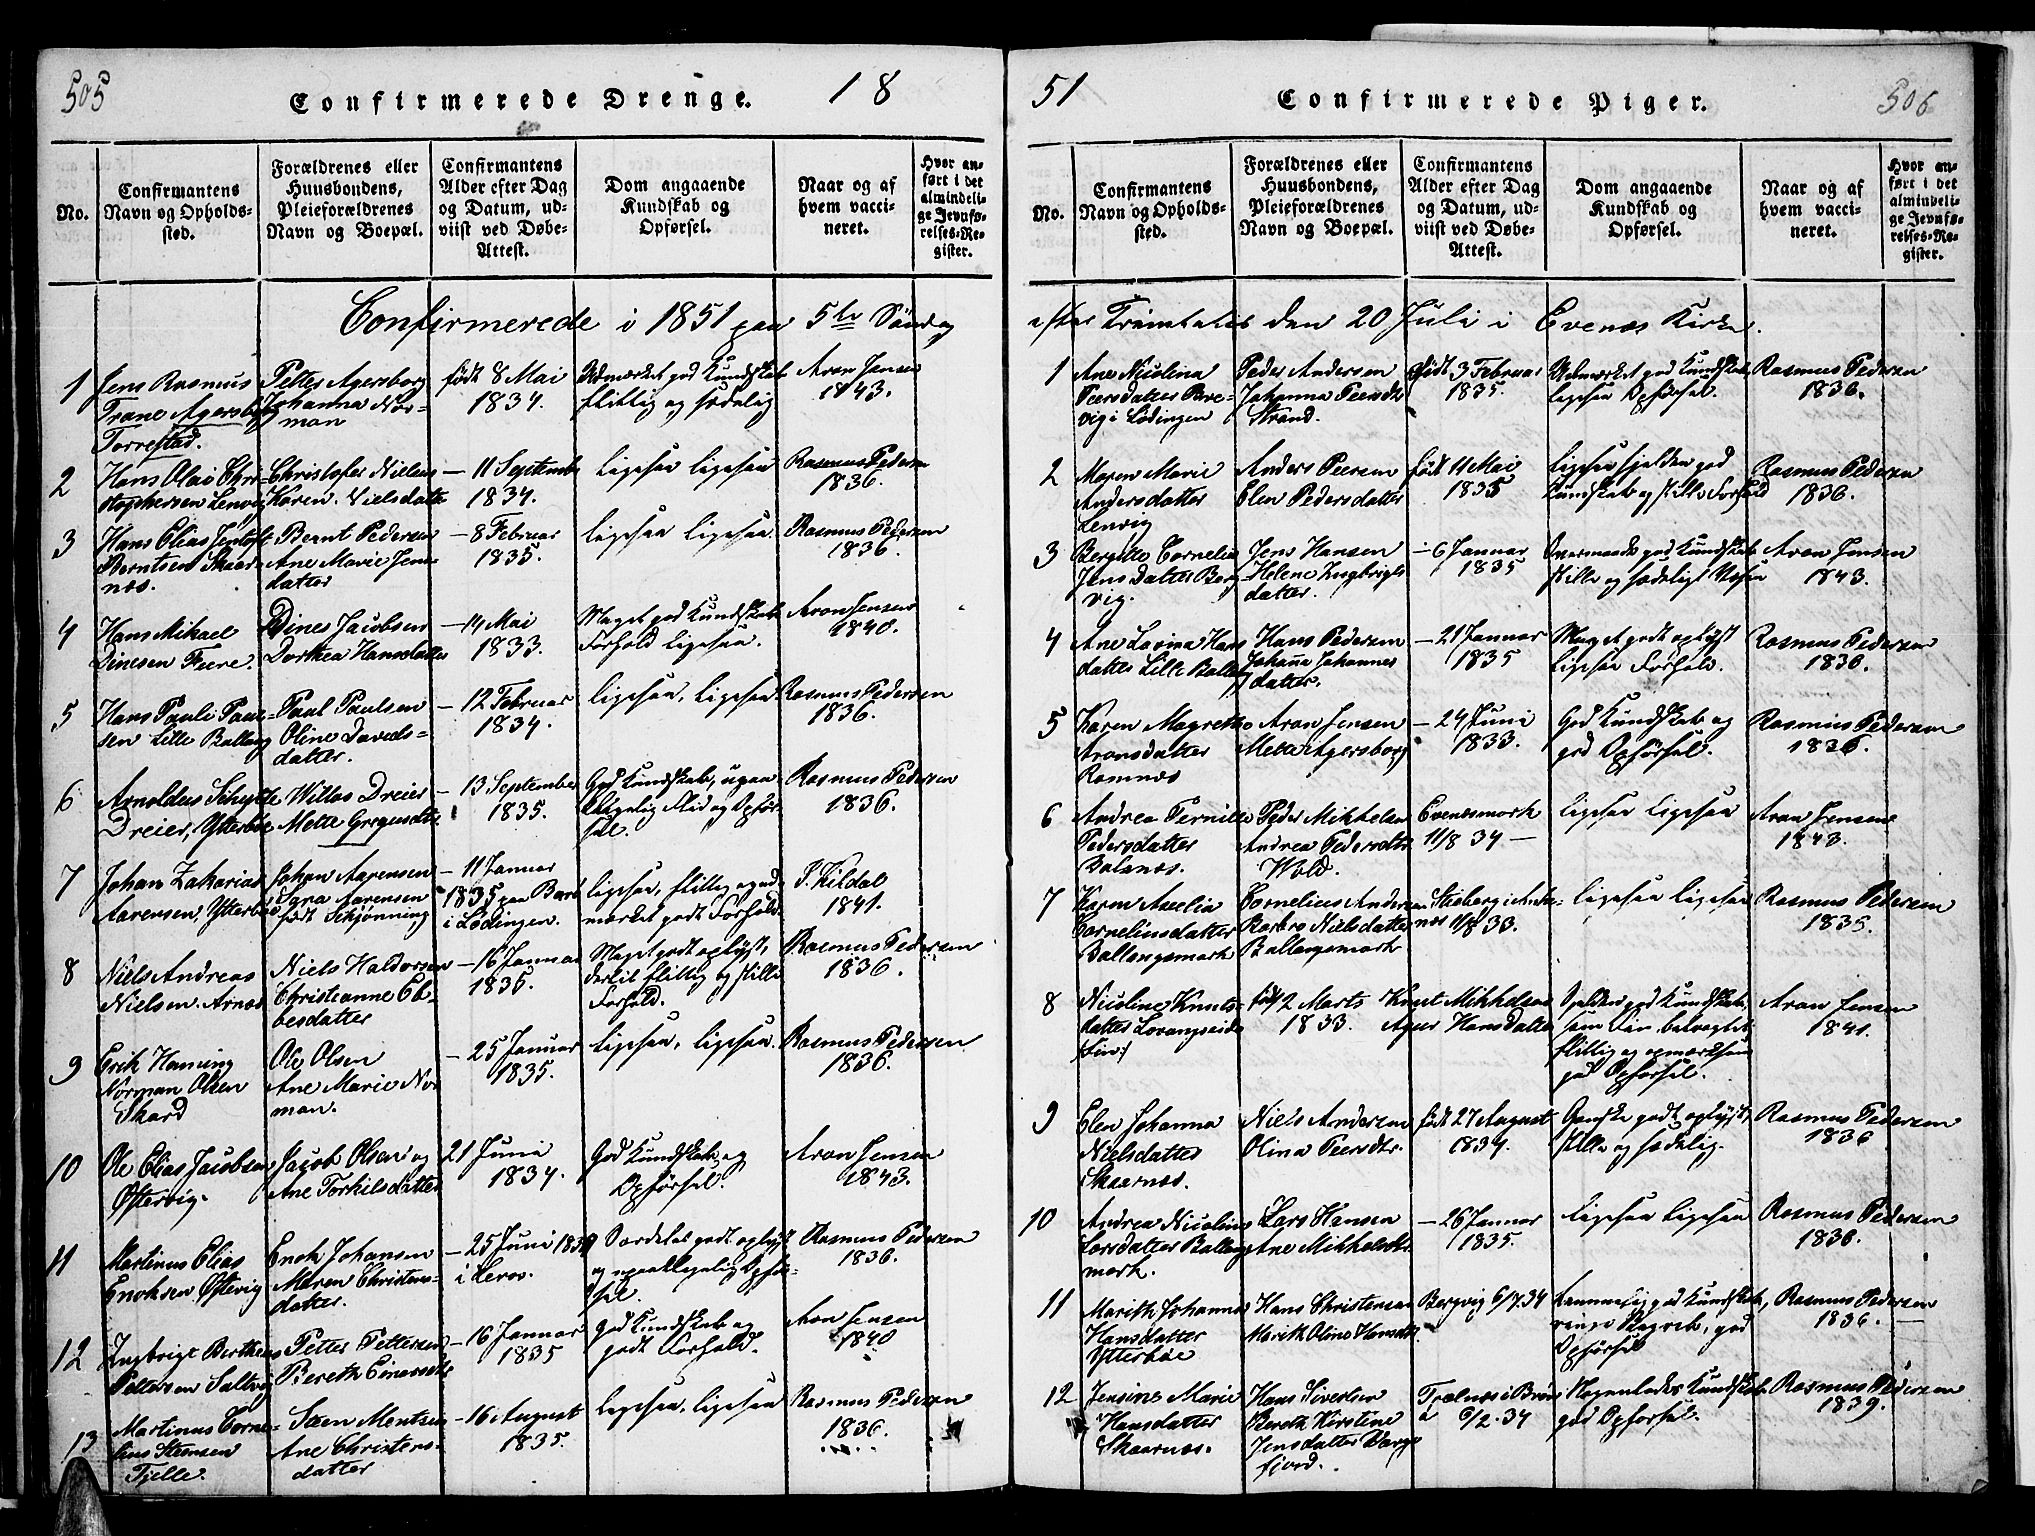 505
Confirmerede Drenge.
18
No.
Confirmantens
Navn og Opholds-
sted.
Forældrenes eller
Huusbondens,
Pleieforældrenes
Navn og Boepæl.
Confirmantens
Alder efter Dag
og Datum, ud-
viist ved Døbe-
Attest.
Dom angaaende
Kundskab og
Opførsel.
Naar og af
hvem vacci-
neret.
Hvor an-
ført i det
almindeli-
ge Jevnfø-
relses-Re-
gister.
Confirmerede i 1851 paa 5te Søndag
1
Jens Rasmus
Trane Agersborg
Torrestad.
Petter Agersborg
Johanna Nor-
man
født 8 Mai
1834.
Udmærket god Kundskab
flittig og sædelig
Aron Jensen
1843.
2
Hans Olai Chri-
stophersen Lenvig
Christofer Nielsen
Karen Nielsdatter
- 11 September
1834.
ligesaa ligesaa
Rasmus Pedersen
1836.
3
Hans Elias Jentoft
Berntsen Skaar-
næs.
Bernt Pedersen
Ane Marie Jens-
datter
- 8 Februar
1835.
ligesaa ligesaa
Rasmus Pedersen
1836.
4
Hans Mikael
Dinesen Fiere.
Dines Jacobsen
Dorthea Hansdatter
- 14 Mai
1833.
Meget god Kundskab
Forhold ligesaa.
Aron Jensen
1840.
5
Hans Pauli Paul-
sen Lille Ballang
Paul Paulsen
Oline Davids-
datter.
- 12 Februar
1834.
ligesaa, ligesaa
Rasmus Pedersen
1836.
6
Arnoldus Schytte
Dreier, Ytterbøe
Willas Dreier
Mette Gregusdtr
- 13 September
1835.
God Kundskab, upaa
klagelig Flid og Opfør-
sel.
Rasmus Pedersen
1836.
7
Johan Zakarias
Aarensen, Ytterbøe
Johan Aarensen
Sara Aarensen
født Schjønning
- 11 Januar
1835 paa Barø
i Lødingen.
ligesaa, flittig og ud-
mærket godt Forhold.
P. Kildal
1841.
8
Niels Andreas
Nielsen Arnæs
Niels Haldorsen
Christianne Eb-
besdatter
- 16 Januar
1836.
Meget godt oplyst,
dertil flittig og stille
Forhold.
Rasmus Pedersen
1836.
9
Erik Haning
Norman Olsen
Skard
Ole Olsen
Ane Marie Nor
man.
- 25 Januar
1835.
ligesaa, ligesaa.
Rasmus Pedersen
1836.
10
Ole Elias Jacobsen
Østervig.
Jacob Olsen og
Ane Torkilsdatter
21 Juni
1834.
God Kundskab og
Opførsel.
Aron Jensen
1843.
11
Martinus Elias
Enoksen Østevig
Enok Johansen
Maren Christens-
datter.
- 25 Juni
Særdeles godt oplyst
og upaaklagelig Opfør-
sel.
Rasmus Pedersen
1836.
12
Ingbrigt Bertheus
Pettersen Saltvig
Petter Pettersen
Bereth Einarsdtr
- 16 Januar
1835
God Kundskab og
godt Forhold.
Aron Jensen
1840
13
Martinus Corne-
lius Steensen
Tjelle.
Steen Mentsen
Ane Christens-
datter
- 16 August
1835.
ligesaa, ligesaa
Rasmus Pedersen
1836.
51
Confirmerede Piger.
506
No.
Confirmantens
Navn og Opholds-
sted.
Forældrenes eller
Huusbondens,
Pleieforældrenes
Navn og Boepæl.
Confirmantens
Alder efter Dag
og Datum, ud-
viist ved Døbe-
Attest.
Dom angaaende
Kundskab og
Opførsel.
Naar og af
hvem vacci-
neret.
Hvor an-
ført i det
almindeli-
ge Jevnfø-
relses-Re-
gister.
efter Trinitatis den 20 Juli i Evenæs Kirke.
1
Ane Nicolina
Peersdatter
vig i Lødingen
Peder Andersen
Johanna Peersdtr
Strand.
født 3 Februar
1835.
Udmærket god Kundskab
ligesaa Opførsel.
Rasmus Pedersen
1836.
2
Maren Marie
Andersdatter
Lenvig
Anders Peersen
Elen Pedersdatter
født 11 Mai
1835
ligesaa sjelden god
Kundskab og stille Forhold
Rasmus Pedersen
1836.
3
Bergitte Cornelia
Jens Datter Berg
vig.
Jens Hansen
Helene Ingbrigts
datter.
- 6 Januar
1835
Overmaade god Kundskab
stille og sædeligt Væsen
Aron Jensen
1843.
4
Ane Lavina Hans
datter Lille Ballang
Hans Pedersen
Johanna Johannes
datter.
- 21 Januar
1835
Meget godt oplyst
ligesaa Forhold.
Rasmus Pedersen
1836.
5
Karen Magrethe
Aronsdatter
Ramnæs
Aron Jensen
Mette Agersborg
- 24 Juni
1833.
God Kundskab og
god Opførsel.
Rasmus Pedersen
1836.
6
Andrea Pernille
Pedersdatter
Balsnæs.
Peder Mikkelsen
Andrea Pedersdtr
Wold.
Evenæsmark
11/8 34 -
ligesaa ligesaa
Aron Jensen
1843.
7
Karen Amelia
Corneliusdatter
Ballangsmark
Cornelius Andersen
Barbro Nielsdatter
Ballangsmark
Stieberg i Anke-
næs 11/8 33.
ligesaa ligesaa
Rasmus Pedersen
1835.
8
Nicoline Knuts-
datter Lavangseide
/:Fin:/
født 2 Marts
1833.
Knut Mikkelsen
Hansdatter
Sjelden god Kundskab,
som Fin betragtet
flittig og opmærksom
god Opførsel.
Aron Jensen
1841.
9
Elen Johanna
Nielsdatter
Skaarnæs.
Niels Andersen
Olina Peersdtr.
født 27 August
1834.
Ganske godt oplyst,
stille og sædelig.
Rasmus Pedersen
1836
10
Andrea Nicoline
Larsdatter Ballangs
mark.
Lars Hansen
Ane Mikkelsdtr
- 26 Januar
1835.
ligesaa ligesaa
Rasmus Pedersen
1836.
11
Marith Johanna
Hansdatter
Ytterbøe
Hans Christensen
Marith Olina Hansdtr
Bergvig 6/7.34
god Kundskab,
god
Opførsel
Rasmus Pedersen
1836.
12
Jensine Marie
Hansdatter
Skaarnæs.
Hans Sivertsen
Bereth Kirstine
Jensdatter
fjord.
Trælnæs i Brøn-
ø 6/2.34
Nogenledes Kundskab
god Opførsel.
Rasmus Pedersen
1839.